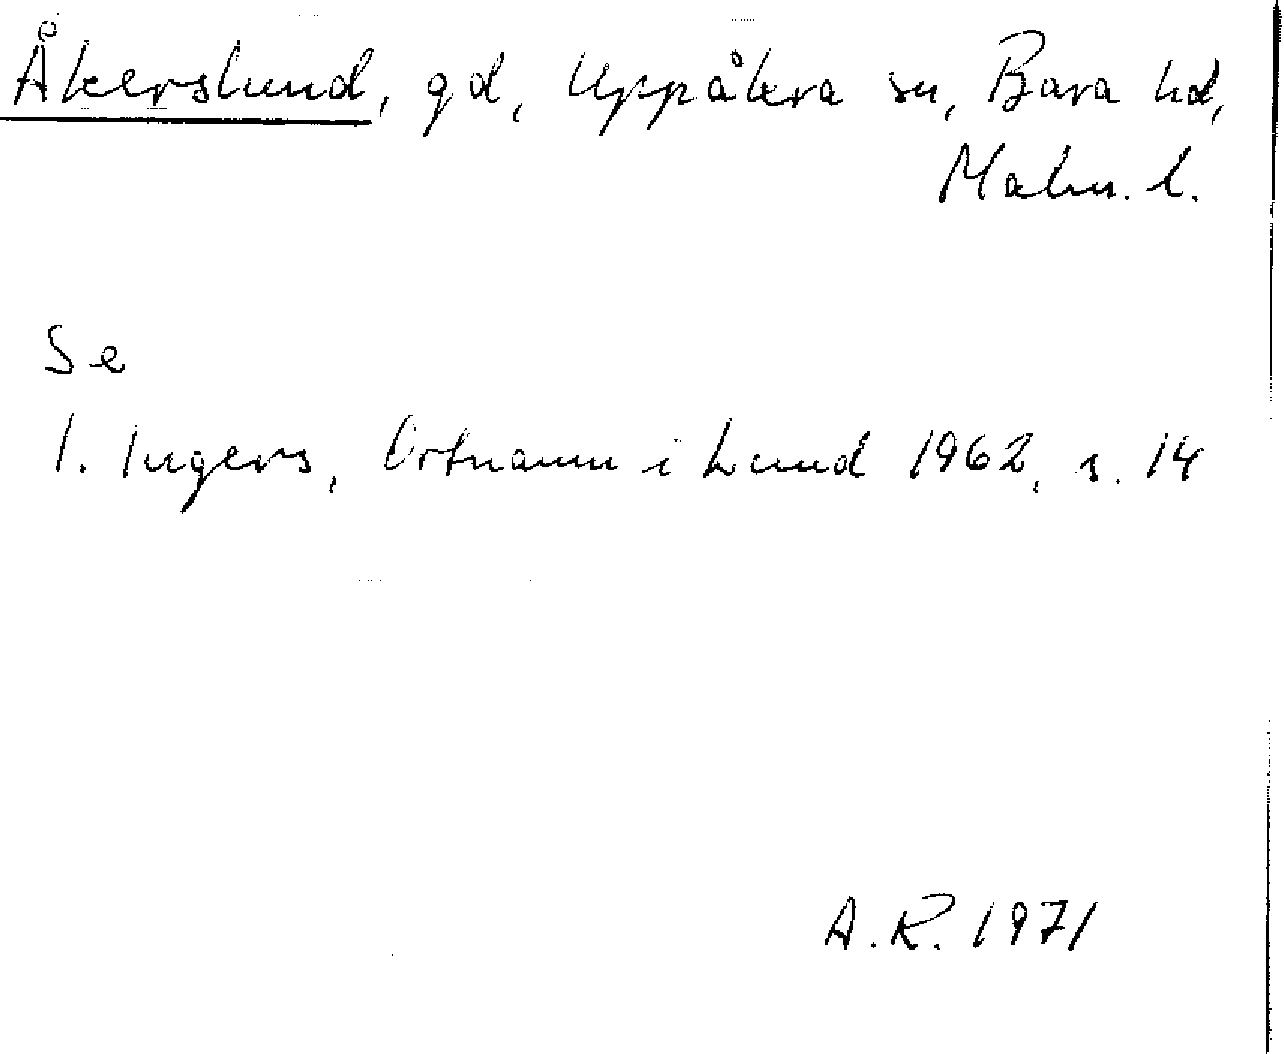 Åkerslund, gd, Uppåkra sn, Bara hd,
Malm. l.
Se
I. Ingers, Ortnamn i Lund 1962, s. 14
A.R. 1971